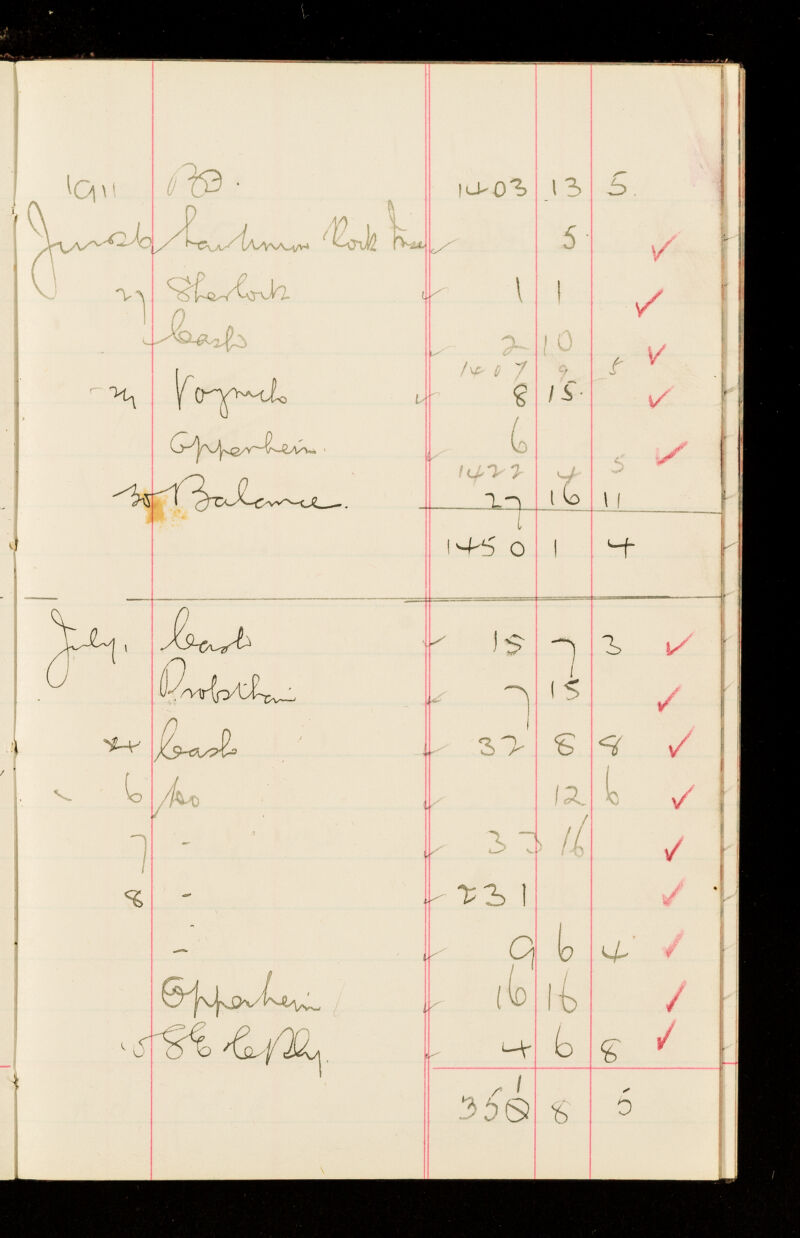 1911 BD. 1403 13 5
June 26 Rock 5
27 Sherlock 1 1
Cash 2 10
1407 9 5
29 Voynich 8 15
Oppenheim. 6
1422 4 5
30 Balance. 27 16 11
1450 1 4
July 1 Cash 15 7 3
Probsthain 7 15
4 Cash 32 8 8
6 do 12 6
7 - 33 16
8 - 231
- 9 6 4
Oppenheim 16 16
10 SE & C Rly. 4 6 8
351 8 5